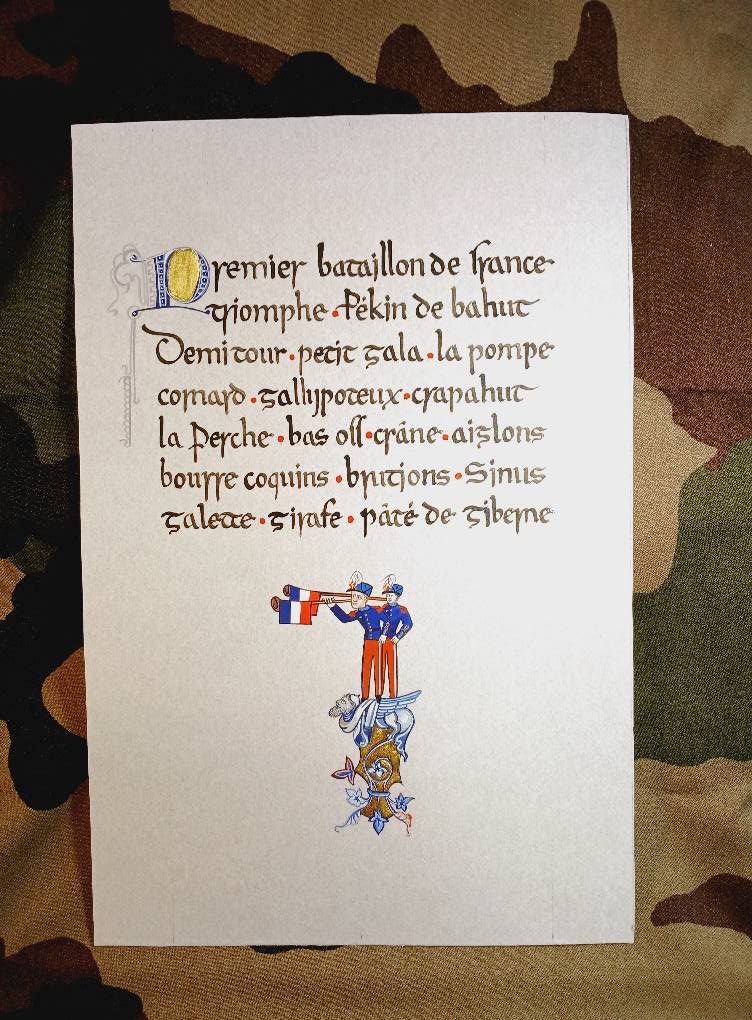 Premier bataillon de france
triomphe · Pékin de bahut
Demi tour · petit gala · la pompe
cornard · gallypoteux · crapahut
la Perche · bas off · crâne · aiglons
bourre coquins · brutions · Sinus
galette · girafe · pâté de giberne